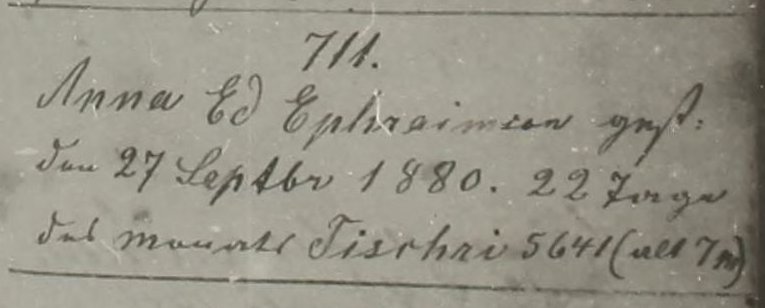 711.
Anna Ed Ephraimson gest:
den 27 Septbr 1880. 22 Tage
des monats Tischri 5641 (alt 7 m)